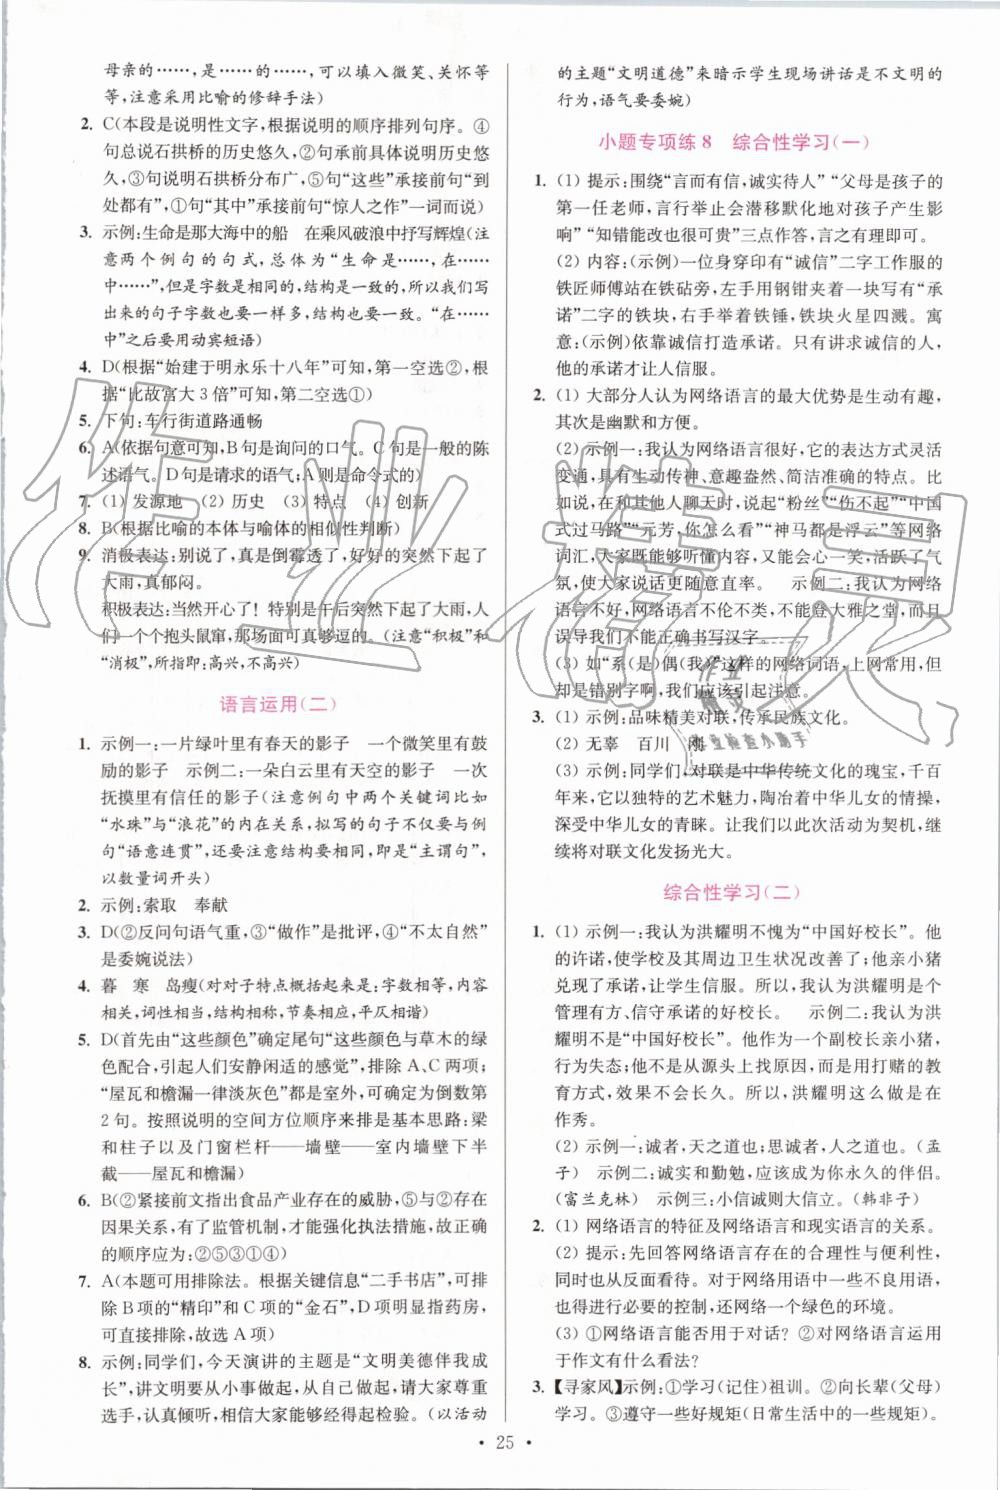 母亲的……,是……的……,可以填入微笑、关怀等
等,注意采用比喻的修辞手法)
2. C(本段是说明性文字,根据说明的顺序排列句序。④
句总说石拱桥的历史悠久,②句承前具体说明历史
悠久,③句说明石拱桥分布广,⑤句“这些”承接前句“到
处都有”,①句“其中”承接前句“惊人之作”一词而说)
3. 示例:生命是那大海中的船 在乘风破浪中抒写辉煌(注
意两个例句的句式,总体为“生命是……,在……
中……”,但是字数是相同的,结构是一致的,所以我们写
出来的句子字数也要一样多,结构也要一致。“在……
中”之后要用动宾短语)
4. D(根据“始建于明永乐十八年”可知,第一空选②,根
据“比故宫大3倍”可知,第二空选①)
5. 下句:车行街道路通畅
6. A(依据句意可知,B句是询问的口气。C句是一般的陈
述语气。D句是请求的语气;A则是命令式的)
7. (1) 发源地 (2) 历史 (3) 特点 (4) 创新
8. B(根据比喻的本体与喻体的相似性判断)
9. 消极表达:别说了,真是倒霉透了,好好的突然下起了
大雨,真郁闷。
积极表达:当然开心了! 特别是午后突然下起了大雨,人
们一个个抱头鼠窜,那场面可真够逗的。(注意“积极”和
“消极”,所指即:高兴,不高兴)
语言运用(二)
1. 示例一:一片绿叶里有春天的影子 一个微笑里有鼓
励的影子 示例二:一朵白云里有天空的影子 一次
抚摸里有信任的影子(注意例句中两个关键词比如
“水珠”与“浪花”的内在关系,拟写的句子不仅要与例
句“语意连贯”,还要注意结构要相同,即是“主谓句”,
以数量词开头)
2. 示例:索取 奉献
3. D(②反问句语气重,③“做作”是批评,④“不太自然”
是委婉说法)
4. 暮 寒 岛瘦(对对子特点概括起来是:字数相等,内容
相关,词性相当,结构相称,节奏相应,平仄相谐)
5. D(首先由“这些颜色”确定尾句“这些颜色与草木的绿
色配合,引起人们安静闲适的感觉”,排除A、C两项;
“屋瓦和檐漏一律淡灰色”都是室外,可确定为倒数第
2句。按照说明的空间方位顺序来排是基本思路:梁
和柱子以及门窗栏杆——墙壁——室内墙壁下半
截——屋瓦和檐漏)
6. B(②紧接前文指出食品产业存在的威胁,⑤与②存在
因果关系,有了监管机制,才能强化执法措施,故正确
的顺序应为:②⑤③①④)
7. A(本题可用排除法。根据关键信息“二手书店”,可排
除B项的“精印”和C项的“金石”,D项明显指药房,
可直接排除,故选A项)
8. 示例:同学们,今天演讲的主题是“文明美德伴我成
长”,讲文明要从小事做起,请大家尊重
选手,认真倾听,相信大家能够经得起检验。(以活动
的主题“文明道德”来暗示学生现场讲话是不文明的
行为,语气要委婉)
小题专项练8 综合性学习(一)
1. (1) 提示:围绕“言而有信,诚实待人”“父母是孩子的
第一任老师,言行举止会潜移默化地对孩子产生影
响”“知错能改也很可贵”三点作答,言之有理即可。
(2) 内容:(示例)一位身穿印有“诚信”二字工作服的
铁匠师傅站在铁砧旁,左手用钢钳夹着一块写有“承
诺”二字的铁块,右手举着铁锤,铁块火星四溅。寓
意:(示例)依靠诚信打造承诺。只有讲求诚信的人,
他的承诺才让人信服。
2. (1) 大部分人认为网络语言的最大优势是生动有趣,
其次是幽默和方便。
(2) 示例一:我认为网络语言很好,它的表达方式灵活
变通,具有生动传神、意趣盎然、简洁准确的特点。比
如说,在和其他人聊天时,说起“粉丝”“伤不起”“中国
式过马路”“元芳,你怎么看”“神马都是浮云”等网络
词汇,大家既能够听懂内容,又能会心一笑,活跃了气
氛,使大家说话更随意直率。 示例二:我认为网络
语言不好,网络语言不伦不类,不能登大雅之堂,而且
误导我们不能正确书写汉字。
(3) 如“系(是)偶(我)”这样的网络词语,上网常用,但
却是错别字啊,我们应该引起注意。
3. (1) 示例:品味精美对联,传承民族文化。
(2) 无辜 百川 刚
(3) 示例:同学们,对联是中华传统文化的瑰宝,千百
年来,它以独特的艺术魅力,陶冶着中华儿女的情操,
深受中华儿女的青睐。让我们以此次活动为契机,继
续将对联文化发扬光大。
综合性学习(二)
1. (1) 示例一:我认为洪耀明不愧为“中国好校长”。他
的许诺,使学校及其周边卫生状况改善了;他亲小猪
兑现了承诺,让学生信服。所以,我认为洪耀明是管理
有方、信守承诺的好校长。 示例二:我认为洪
耀明不是“中国好校长”。他作为一个副校长亲小猪,
行为失态;他不是从源头上找原因,而是用打赌的教
育方式,效果不会长久。所以,洪耀明这么做是在
作秀。
(2) 示例一:诚者,天之道也;思诚者,人之道也。(孟
子) 示例二:诚实和勤勉,应该成为你永久的伴侣。
(富兰克林) 示例三:小信诚则大信立。(韩非子)
2. (1) 网络语言的特征及网络语言和现实语言的关系。
(2) 提示:先回答网络语言存在的合理性与便利性,
同时也从反面看待。对于网络用语中一些不良用语,
也得进行必要的控制,还网络一个绿色的环境。
(3) ①网络语言能否用于对话? ②对网络语言运用
于作文有什么看法?
3. 【寻家风】示例:①学习(记住)祖训。②向长辈(父母)
学习。③遵守一些好规矩(日常生活中的一些规矩)。
• 25 •
作业精灵
作业
精灵
作业检查小助手